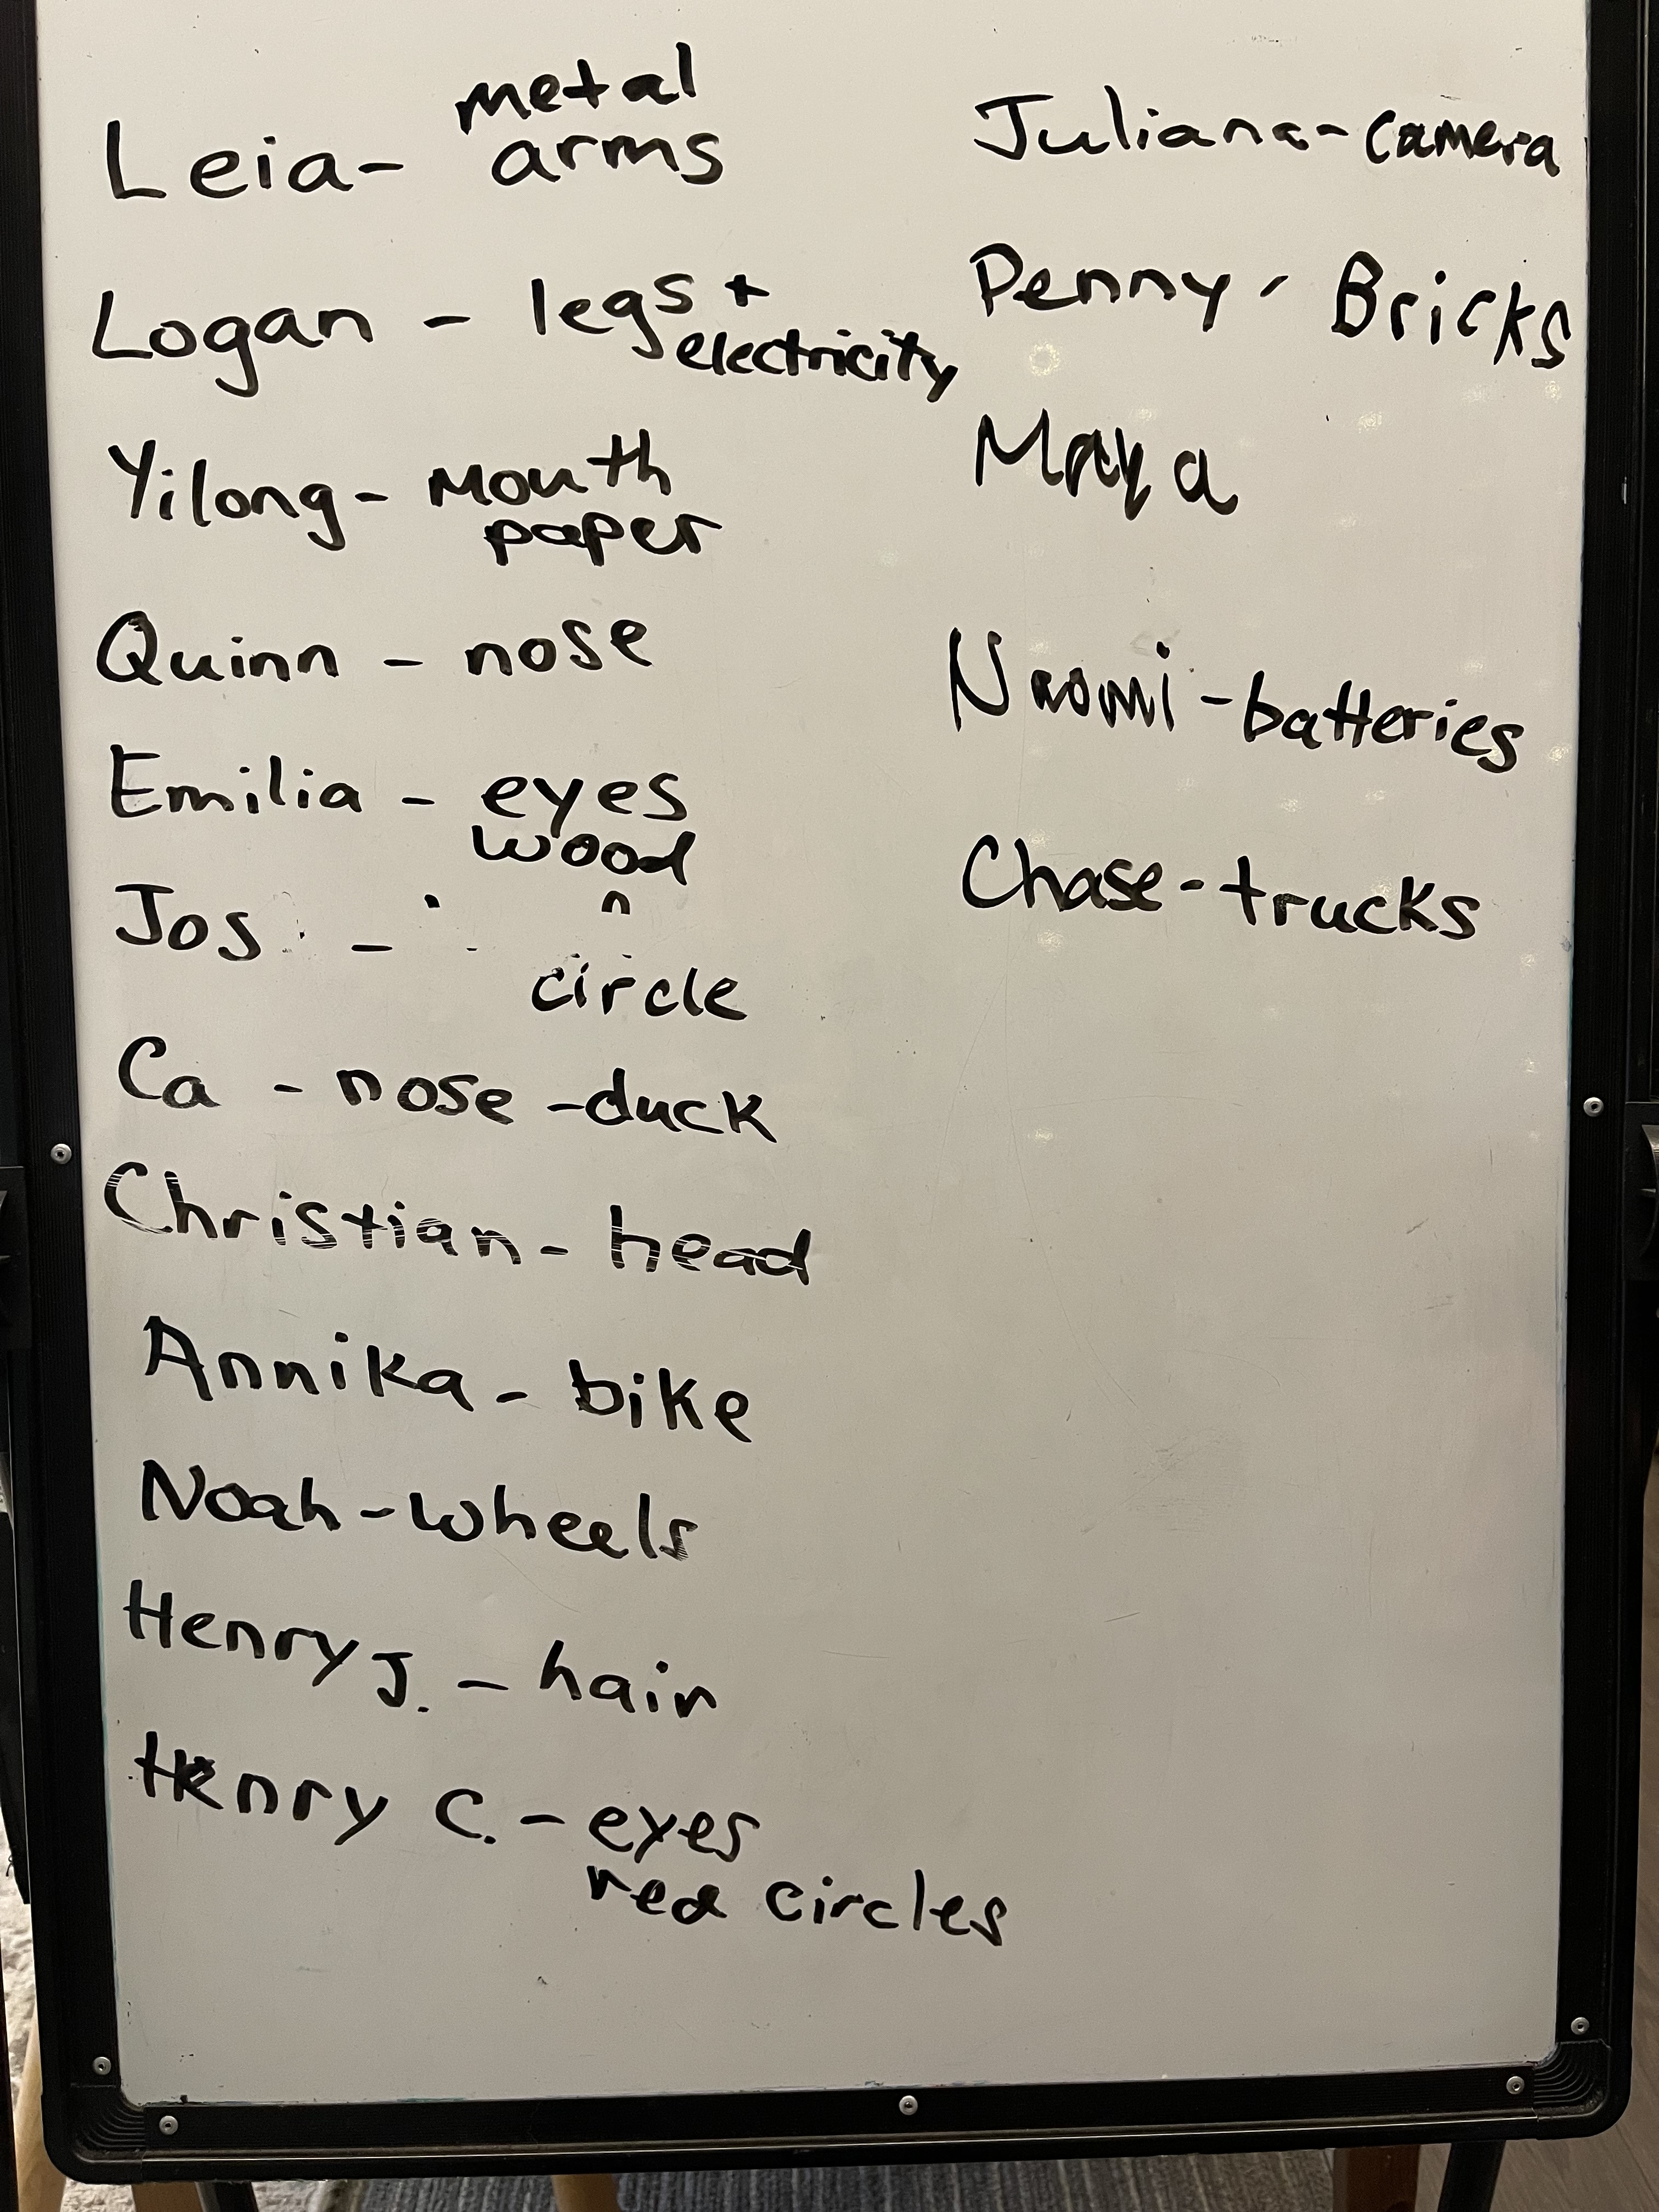 metal
Leia- arms
Logan - legs +
electricity
Yilong- Mouth
paper
Quinn - nose
Emilia - eyes
wood
Jos -
circle
Ca - nose -duck
Christian- head
Annika - bike
Noah-wheels
Henry J. - hair
Henry C. - eyes
red circles
Juliana-camera
Penny - Bricks
Maya
Naomi-batteries
Chase-trucks